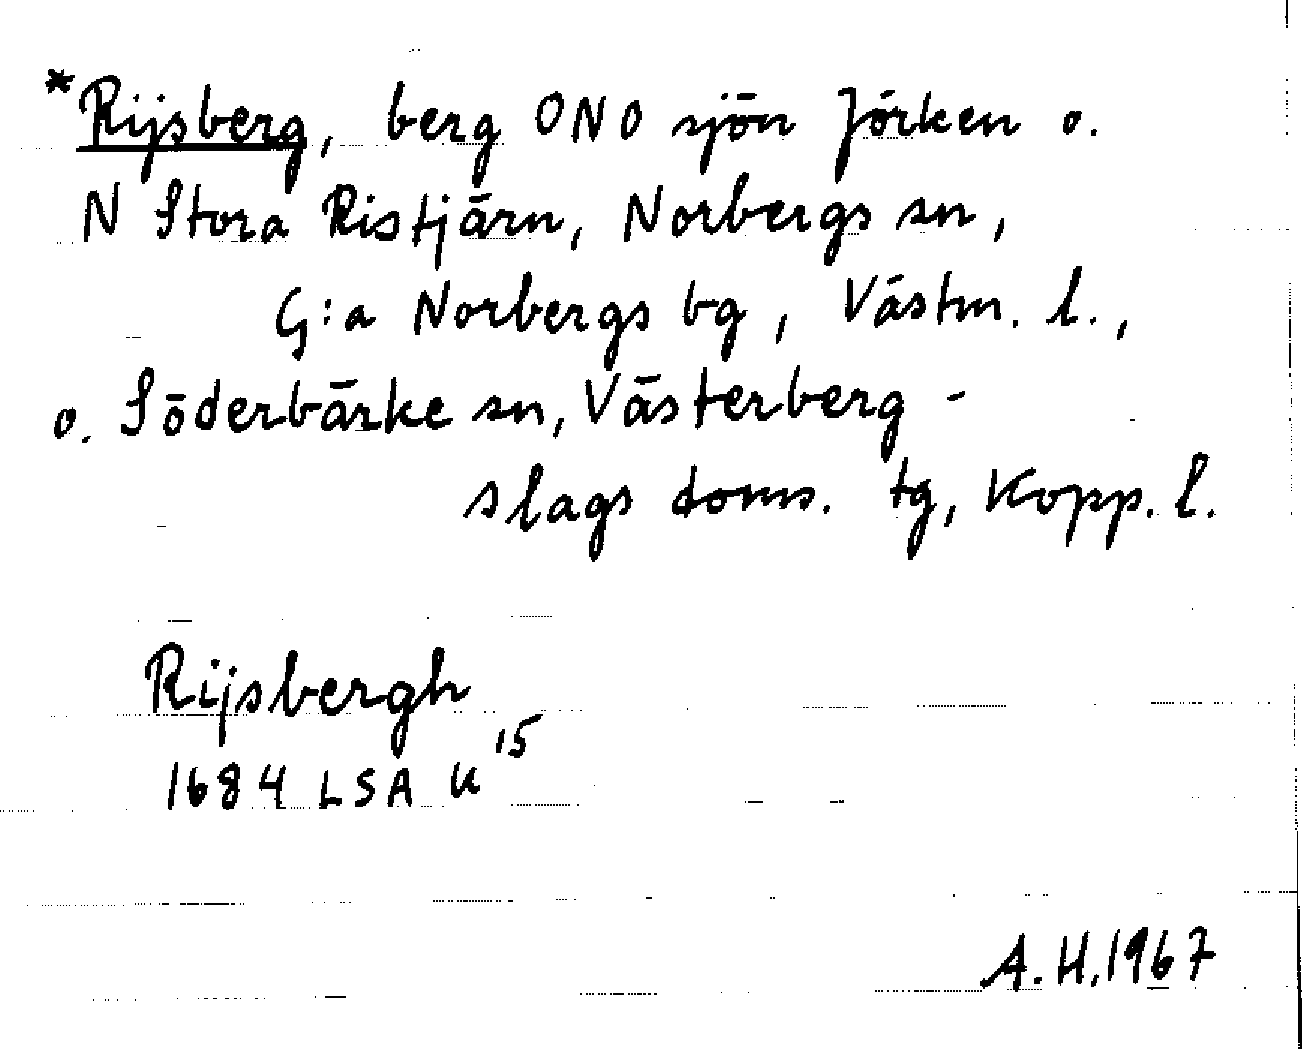 *Rijsberg, berg ONO sjön Jörken o.
N Stora Ristjärn, Norbergs sn,
G:a Norbergs bg, Västm. l.,
o. Söderbärke sn, Västerberg-
slags doms. tg, Kopp. l.
Rijsbergh
1684 LSA U 15
A.H. 1967